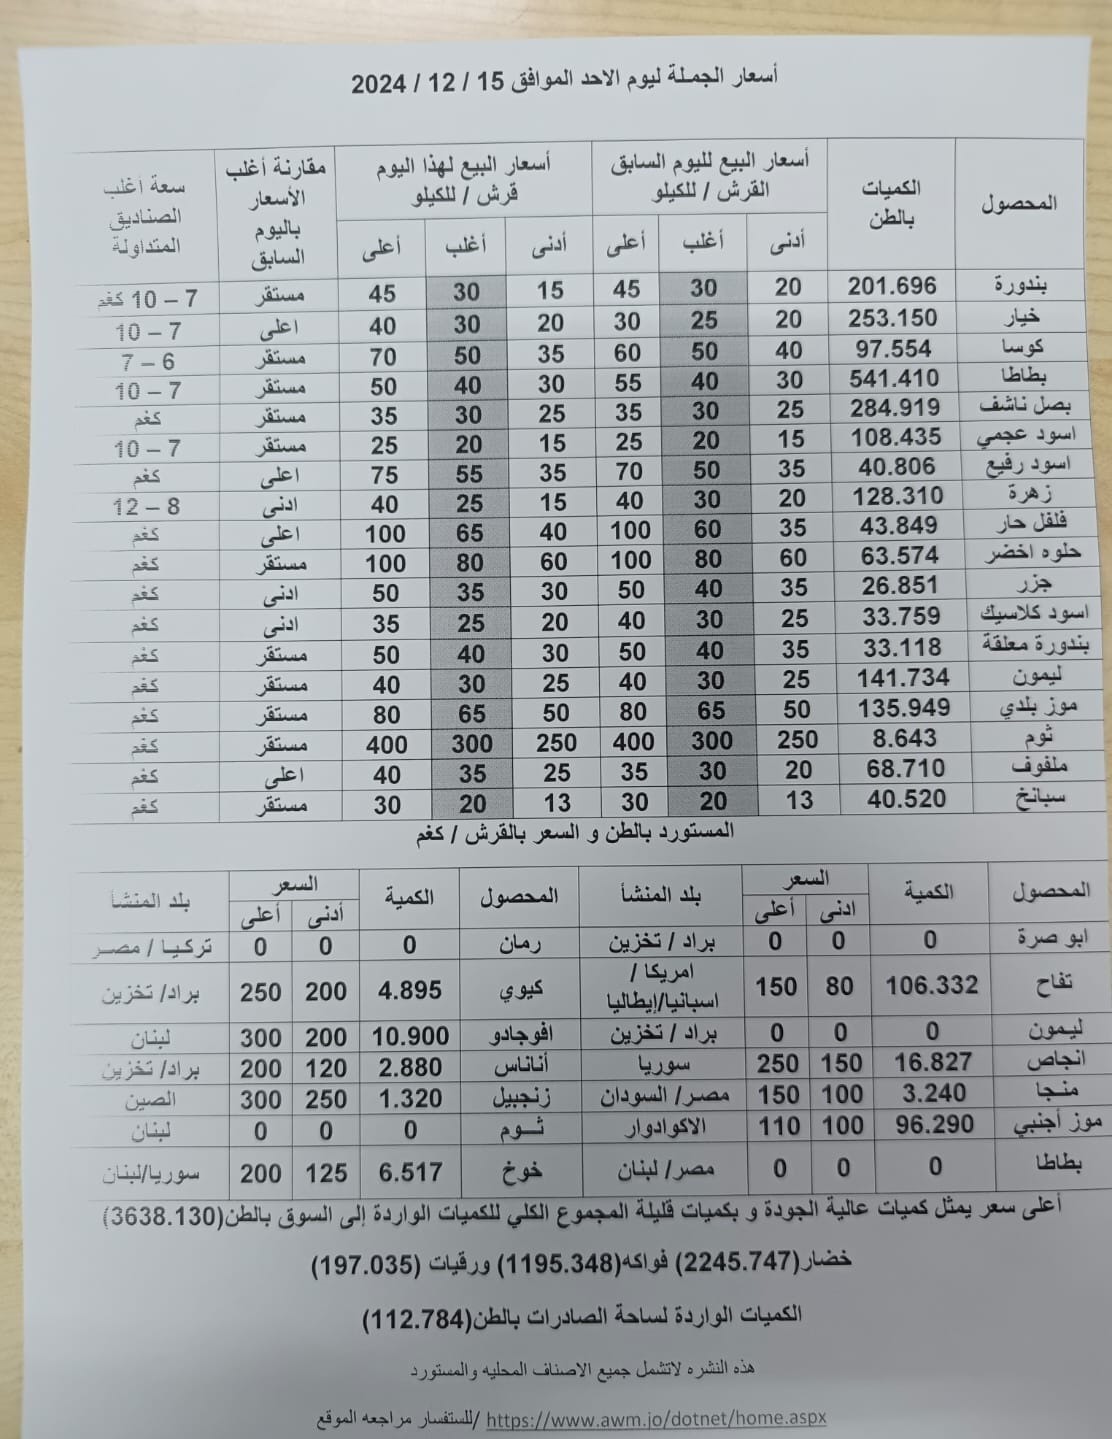 أسعار الجملة ليوم الاحد الموافق 15 / 12 / 2024
المحصول الكميات بالطن أسعار البيع لليوم السابق القرش / للكيلو أسعار البيع لهذا اليوم قرش / للكيلو مقارنة أغلب الأسعار باليوم السابق سعة أغلب الصناديق المتداولة
أدنى أغلب أعلى أدنى أغلب أعلى
بندورة 201.696 20 30 45 15 30 45 مستقر 7 – 10 كغم
خيار 253.150 20 25 30 20 30 40 اعلى 7 – 10
كوسا 97.554 40 50 60 35 50 70 مستقر 6 – 7
بطاطا 541.410 30 40 55 30 40 50 مستقر 7 – 10
بصل ناشف 284.919 25 30 35 25 30 35 مستقر كغم
اسود عجمي 108.435 15 20 25 15 20 25 مستقر 7 – 10
اسود رفيع 40.806 35 50 70 35 55 75 اعلى كغم
زهرة 128.310 20 30 40 15 25 40 ادنى 8 – 12
فلفل حار 43.849 35 60 100 40 65 100 اعلى كغم
حلوه اخضر 63.574 60 80 100 60 80 100 مستقر كغم
جزر 26.851 35 40 50 30 35 50 ادنى كغم
اسود كلاسيك 33.759 25 30 40 20 25 35 ادنى كغم
بندورة معلقة 33.118 35 40 50 30 40 50 مستقر كغم
ليمون 141.734 25 30 40 25 30 40 مستقر كغم
موز بلدي 135.949 50 65 80 50 65 80 مستقر كغم
ثوم 8.643 250 300 400 250 300 400 مستقر كغم
ملفوف 68.710 20 30 35 25 35 40 اعلى كغم
سبانخ 40.520 13 20 30 13 20 30 مستقر كغم
المستورد بالطن و السعر بالقرش / كغم
المحصول الكمية السعر بلد المنشأ المحصول الكمية السعر بلد المنشأ
ادنى أعلى أدنى أعلى
ابو صرة 0 0 0 براد / تخزين رمان 0 0 0 تركيا / مصر
تفاح 106.332 80 150 امريكا / اسبانيا/إيطاليا كيوي 4.895 200 250 براد/ تخزين
ليمون 0 0 0 براد / تخزين افوجادو 10.900 200 300 لبنان
انجاص 16.827 150 250 سوريا أناناس 2.880 120 200 براد/ تخزين
منجا 3.240 100 150 مصر/ السودان زنجبيل 1.320 250 300 الصين
موز أجنبي 96.290 100 110 الاكوادوار ثوم 0 0 0 لبنان
بطاطا 0 0 0 مصر/ لبنان خوخ 6.517 125 200 سوريا/لبنان
أعلى سعر يمثل كميات عالية الجودة و بكميات قليلة المجموع الكلي للكميات الواردة إلى السوق بالطن(3638.130)
خضار(2245.747) فواكه(1195.348) ورقيات (197.035)
الكميات الواردة لساحة الصادرات بالطن(112.784)
هذه النشره لاتشمل جميع الاصناف المحليه والمستورد
للستفسار مراجعه الموقع/ https://www.awm.jo/dotnet/home.aspx